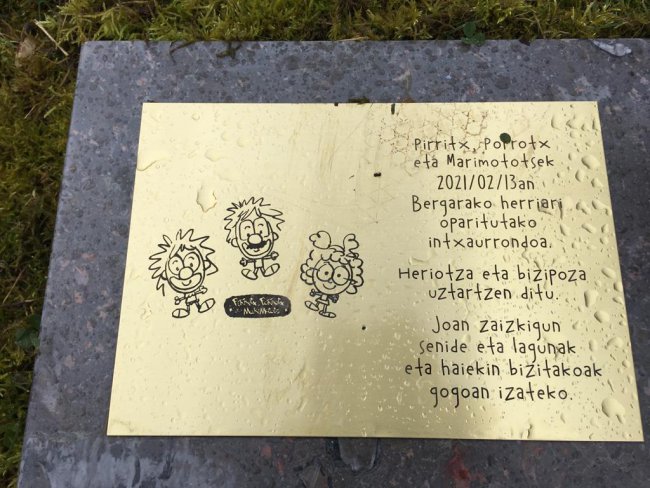 Pirritx, Porrotx
eta Marimototsek
2021/02/13an
Bergarako herriari
oparitutako
intxaurrondoa.
Heriotza eta bizipoza
uztartzen ditu.
Joan zaizkigun
senide eta lagunak
eta haiekin bizitakoak
gogoan izateko.